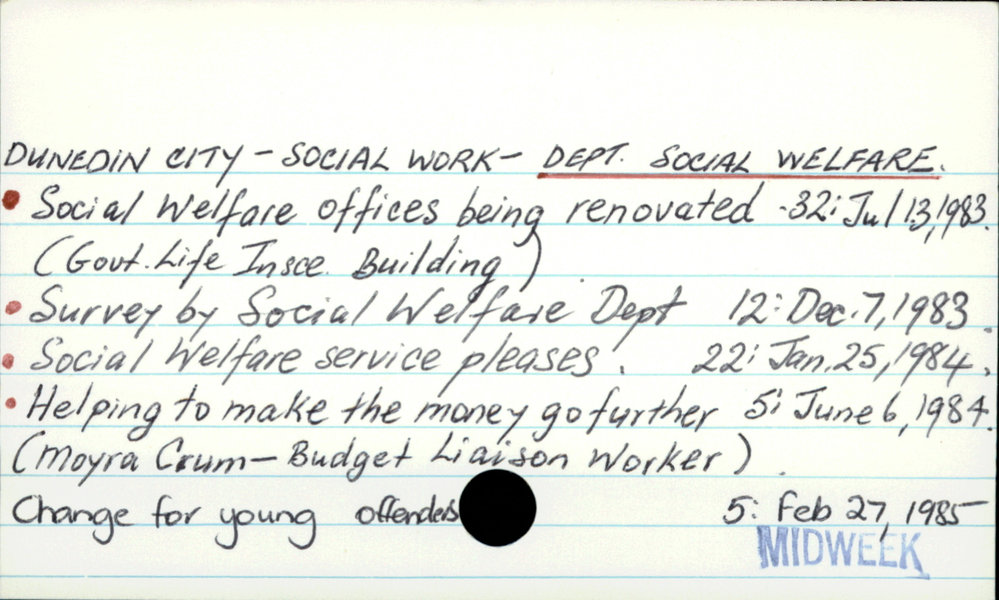 DUNEDIN CITY - SOCIAL WORK - DEPT. SOCIAL WELFARE.
• Social Welfare offices being renovated - 32: Jul 13, 1983.
(Govt. Life Insce. Building)
• Survey by Social Welfare Dept 12: Dec. 7, 1983.
• Social Welfare service pleases. 22: Jan. 25, 1984.
• Helping to make the money go further 5: June 6, 1984.
(Moyra Crum - Budget Liaison Worker).
Change for young offenders 5: Feb 27, 1985
MIDWEEK